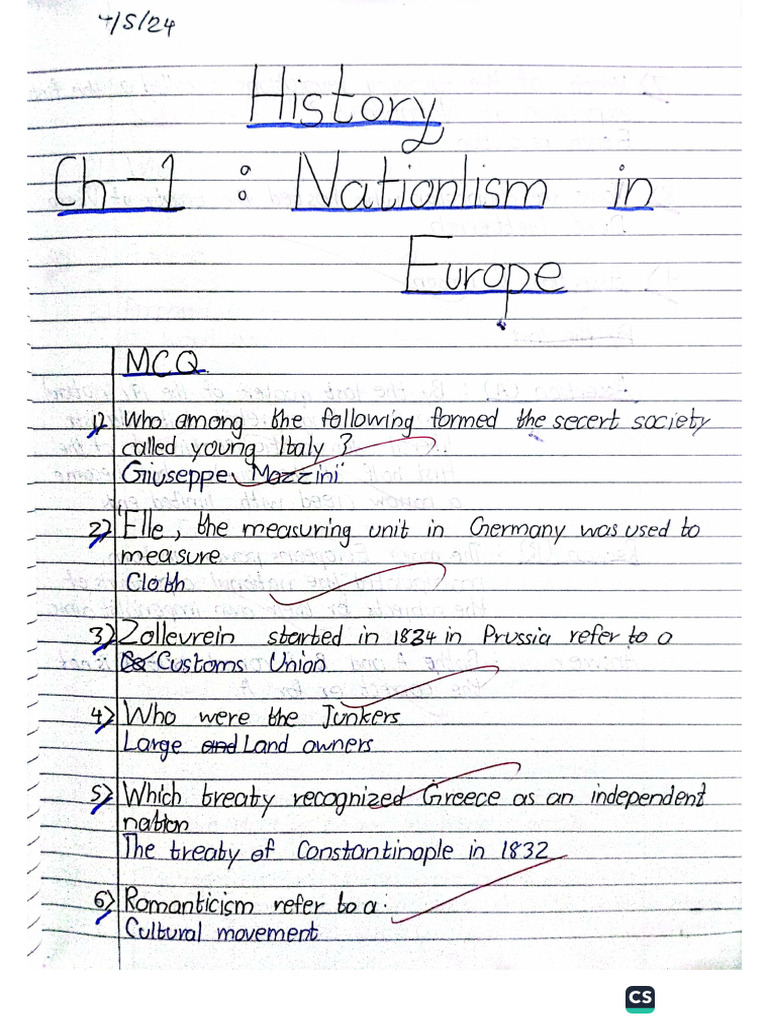 4/5/24
History
Ch-1 : Nationlism in
Europe
MCQ
1) Who among the following formed the secert society
called young Italy ?
Giuseppe Mazzini
2) 'Elle, the measuring unit in Germany was used to
measure
Cloth
3) Zollevrein started in 1834 in Prussia refer to a
Customs Union
4) Who were the Junkers
Large Land owners
5) Which treaty recognized Greece as an independent
nation
The treaty of Constantinople in 1832
6) Romanticism refer to a.
Cultural movement
CS